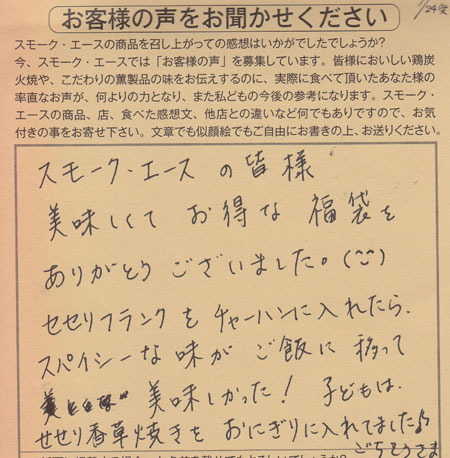 1/24受
お客様の声をお聞かせください
スモーク・エースの商品を召し上がっての感想はいかがでしたでしょうか?
今、スモーク・エースでは「お客様の声」を募集しています。皆様においしい鶏炭
火焼や、こだわりの薫製品の味をお伝えするのに、実際に食べて頂いたあなた様の
率直なお声が、何よりの力となり、また私どもの今後の参考になります。スモーク・
エースの商品、店、食べた感想文、他店との違いなど何でもありですので、お気
付きの事をお寄せ下さい。文章でも似顔絵でもご自由にお書きの上、お送りください。
スモーク・エースの皆様
美味しくてお得な福袋を
ありがとうございました。(^^)
セセリフランクをチャーハンに入れたら、
スパイシーな味がご飯に移って
美味しかった! 子どもは、
せせり香草焼きをおにぎりに入れてました♪
ごちそうさま